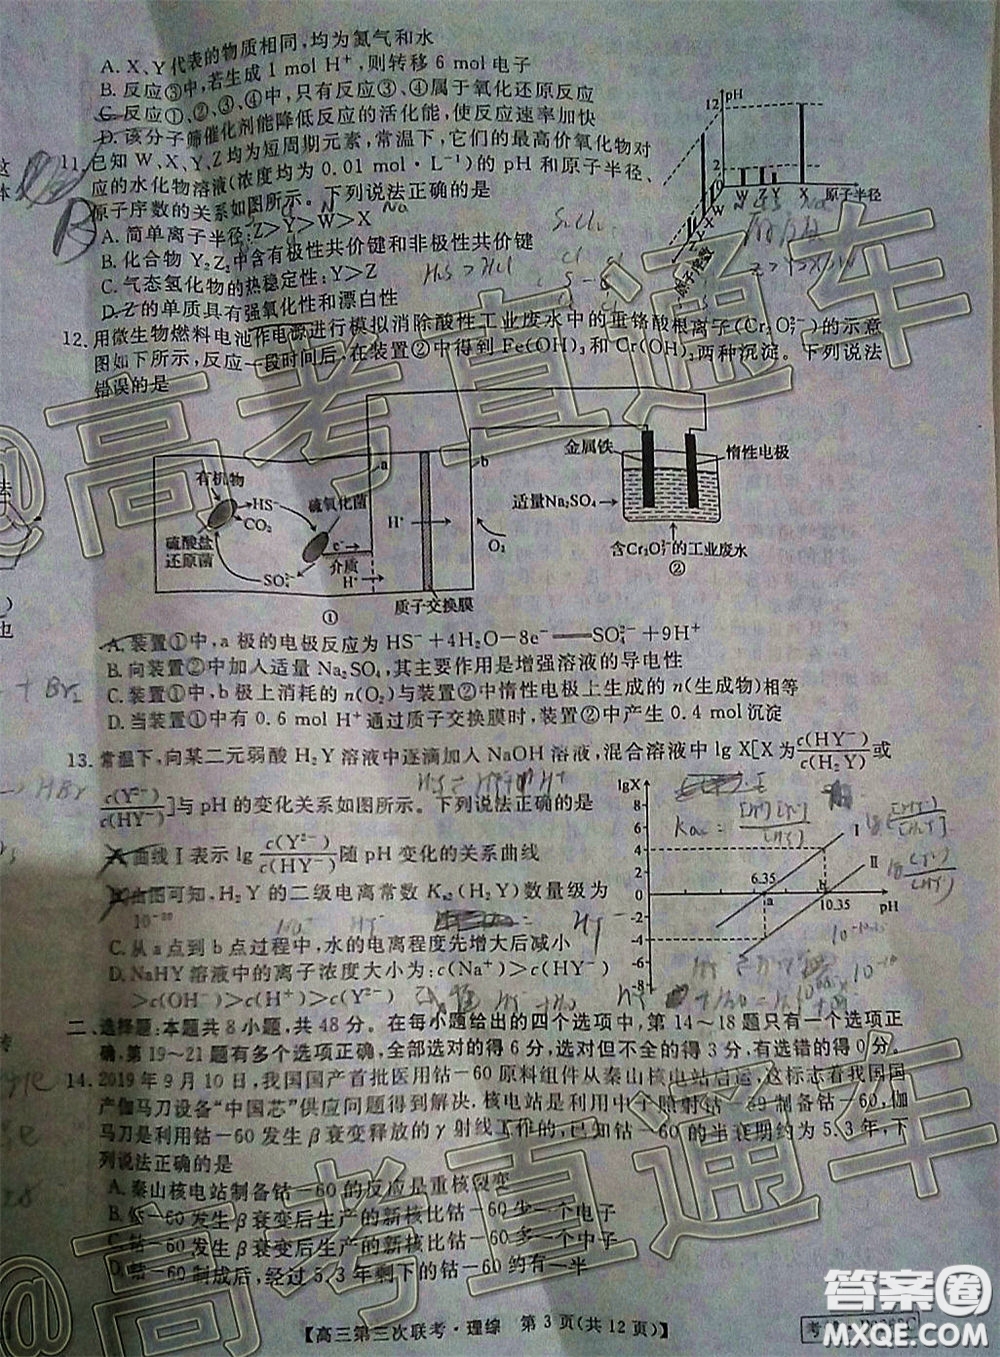 代表的物质相同,均为氮气和水
A. X、Y代表的物质相同,均为氮气和水
B. 反应③中,若生成 1 mol H⁺,则转移 6 mol 电子
C. 反应①、②、③、④中,只有反应③、④属于氧化还原反应
D. 该分子筛催化剂能降低反应的活化能,使反应速率加快
11. 已知 W、X、Y、Z均为短周期元素,常温下,它们的最高价氧化物对
应的水化物溶液(浓度均为 0.01 mol·L⁻¹)的 pH 和原子半径、
原子序数的关系如图所示。下列说法正确的是
A. 简单离子半径:Z>Y>W>X
B. 化合物 Y₂Z₂中含有极性共价键和非极性共价键
C. 气态氢化物的热稳定性:Y>Z
D. Z的单质具有强氧化性和漂白性
pH
12
2
0
W Z Y X
原子半径
原子序数
12. 用微生物燃料电池作电源进行模拟消除酸性工业废水中的重铬酸根离子(Cr₂O₇²⁻)的示意
图如下所示,反应一段时间后,在装置②中得到 Fe(OH)₃和 Cr(OH)₃两种沉淀。下列说法
错误的是
有机物
HS⁻
CO₂
硫酸盐
还原菌
SO₄²⁻
硫氧化菌
e⁻
介质
H⁺
a
H⁺
b
O₂
质子交换膜
①
金属铁
惰性电极
适量Na₂SO₄
含Cr₂O₇²⁻的工业废水
②
A. 装置①中,a 极的电极反应为 HS⁻+4H₂O−8e⁻══SO₄²⁻+9H⁺
B. 向装置②中加入适量 Na₂SO₄,其主要作用是增强溶液的导电性
C. 装置①中,b 极上消耗的 n(O₂)与装置②中惰性电极上生成的 n(生成物)相等
D. 当装置①中有 0.6 mol H⁺通过质子交换膜时,装置②中产生 0.4 mol沉淀
13. 常温下,向某二元弱酸 H₂Y 溶液中逐滴加入 NaOH 溶液,混合溶液中 lg X[X 为c(HY⁻)/c(H₂Y)或
c(Y²⁻)/c(HY⁻)]与 pH 的变化关系如图所示。下列说法正确的是
A. 曲线 I 表示 lg c(Y²⁻)/c(HY⁻)随 pH 变化的关系曲线
B. 由图可知,H₂Y 的二级电离常数 Kₐ₂(H₂Y)数量级为
10⁻¹⁰
C. 从 a 点到 b 点过程中,水的电离程度先增大后减小
D. NaHY 溶液中的离子浓度大小为:c(Na⁺)>c(HY⁻)
>c(OH⁻)>c(H⁺)>c(Y²⁻)
lgX
8
6
4
2
0
-2
-4
-6
-8
6.35
a
10.35
I
II
pH
二、选择题:本题共 8 小题,共 48 分。在每小题给出的四个选项中,第 14~18 题只有一个选项正
确,第 19~21 题有多个选项正确,全部选对的得 6 分,选对但不全的得 3 分,有选错的得 0 分。
14. 2019 年 9 月 10 日,我国国产首批医用钴—60 原料组件从秦山核电站启运,这标志着我国国
产伽马刀设备“中国芯”供应问题得到解决,核电站是利用中子照射钴—59 制备钴—60,伽
马刀是利用钴—60 发生 β 衰变释放的 γ 射线工作的,已知钴—60 的半衰期约为 5.3 年,下
列说法正确的是
A. 秦山核电站制备钴—60 的反应是重核裂变
B. 钴—60 发生 β 衰变后生产的新核比钴—60 少一个电子
C. 钴—60 发生 β 衰变后生产的新核比钴—60 多一个中子
D. 钴—60 制成后,经过 5.3 年剩下的钴—60约有一半
【高三第三次联考·理综 第 3 页(共 12 页)】
@高考直通车
@高考直通车
答案圈
MXQE.COM